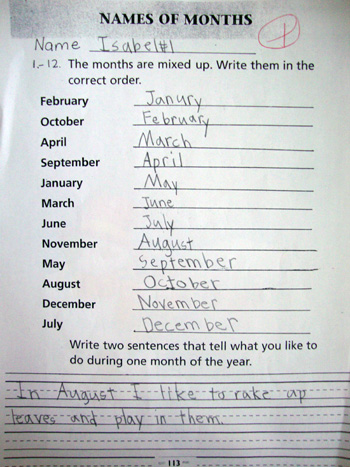 NAMES OF MONTHS
Name Isabel#1
1.–12. The months are mixed up. Write them in the
correct order.
February Janury
October February
April March
September April
January May
March June
June July
November August
May September
August October
December November
July December
Write two sentences that tell what you like to
do during one month of the year.
In August I like to rake up
leaves and play in them.
113